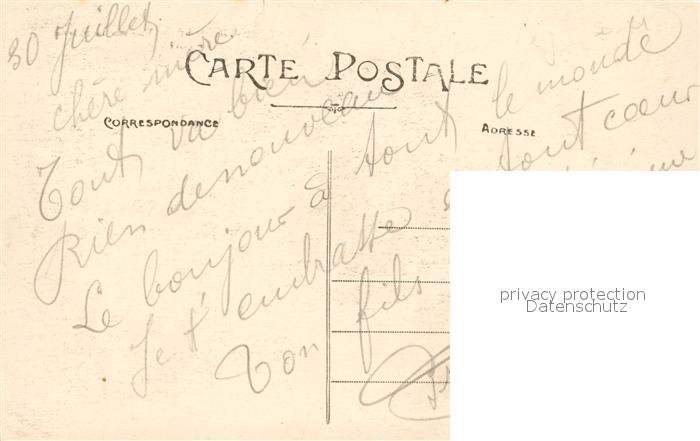 30 Juillet
CARTE POSTALE
CORRESPONDANCE
ADRESSE
chère mère
Tout va bien
Rien de nouveau
Le bonjour à tout le monde
Je t'embrasse de tout coeur
Ton fils
privacy protection
Datenschutz